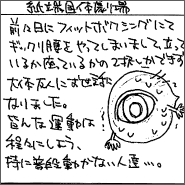 前々日にフィットボクシングにて
ギックリ腰をやってしまいまして立って
いるか座っているかの2択しかできず
大体友人にお世話に
なりました。
皆んな運動は
程々にしよう、
特に普段動かない人達…。